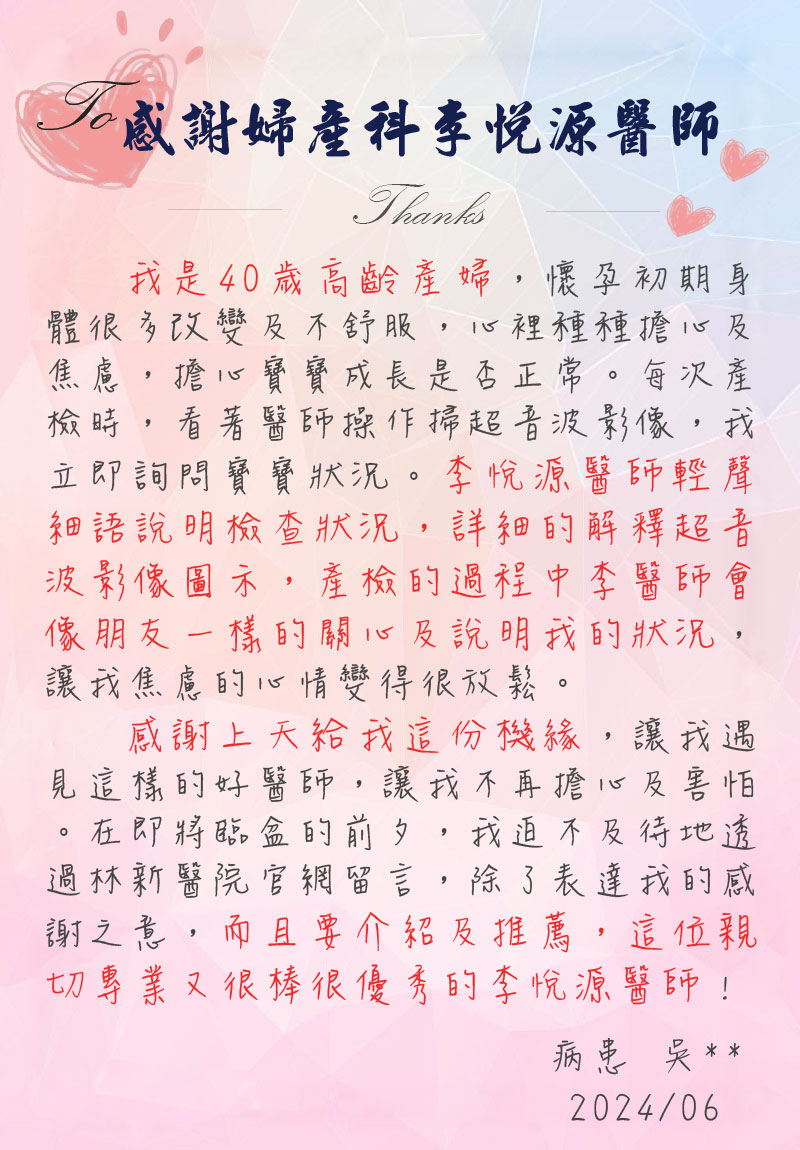 To 感謝婦產科李悅源醫師
Thanks
我是40歲高齡產婦，懷孕初期身
體很多改變及不舒服，心裡種種擔心及
焦慮，擔心寶寶成長是否正常。每次產
檢時，看著醫師操作掃超音波影像，我
立即詢問寶寶狀況。李悅源醫師輕聲
細語說明檢查狀況，詳細的解釋超音
波影像圖示，產檢的過程中李醫師會
像朋友一樣的關心及說明我的狀況，
讓我焦慮的心情變得很放鬆。
感謝上天給我這份機緣，讓我遇
見這樣的好醫師，讓我不再擔心及害怕
。在即將臨盆的前夕，我迫不及待地透
過林新醫院官網留言，除了表達我的感
謝之意，而且要介紹及推薦，這位親
切專業又很棒很優秀的李悅源醫師！
病患 吳**
2024/06